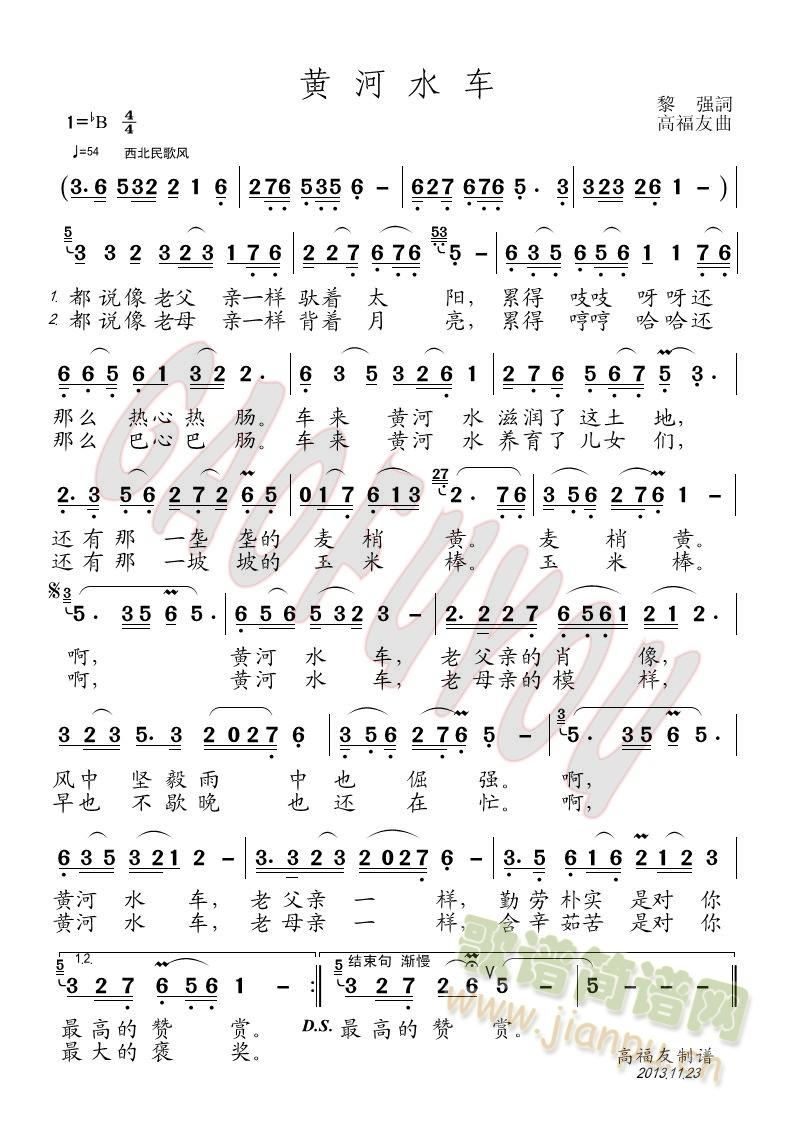 黄河水车
黎 强詞
1=♭B 4/4
高福友曲
♩=54 西北民歌风
(3. 6 532 2 1 6 | 276 535 6 - | 627 676 5. 3 | 323 26 1 - )
5 3 3 2 323 176 | 227 676 53 5 - | 635 656 1 1 76
1. 都说像老父 亲一样 驮着 太 阳, 累得 吱吱 呀呀还
2. 都说像老母 亲一样 背着 月 亮, 累得 哼哼 哈哈还
665 61 32 2. | 6 3 5 3261 | 276 567 5 3.
那么 热心热 肠。 车来 黄河 水 滋润了 这土 地,
那么 巴心巴 肠。 车来 黄河 水 养育了 儿女 们,
2. 3 56 272 65 | 017 613 27 2. 76 | 356 276 1 -
还有那 一垄 垄的 麦梢 黄。 麦 梢 黄。
还有那 一坡 坡的 玉米 棒。 玉 米 棒。
3 5. 35 6 5. | 656 532 3 - | 2. 227 6561 21 2.
啊, 黄河 水 车, 老父亲的 肖 像,
啊, 黄河 水 车, 老母亲的 模 样,
323 5. 3 2027 6 | 356 276 5 - | 3 5. 35 6 5.
风中 坚毅雨 中也 倔 强。 啊,
早也 不歇晚 也还 在 忙。 啊,
635 321 2 - | 3. 323 2027 6 - | 3. 5 616 2123
黄河 水 车, 老父亲 一 样, 勤劳 朴实 是对 你
黄河 水 车, 老母亲 一 样, 含辛 茹苦 是对 你
1.2. 结束句 渐慢
5 3 27 6 56 1 - :‖ 5 3 27 26 5 | 5 - - - ‖
最高的赞 赏。 D.S. 最高的赞 赏。
最大的褒 奖。
歌谱简谱网
www.jianpu.cn
高福友制谱
2013.11.23
GAOFUYOU